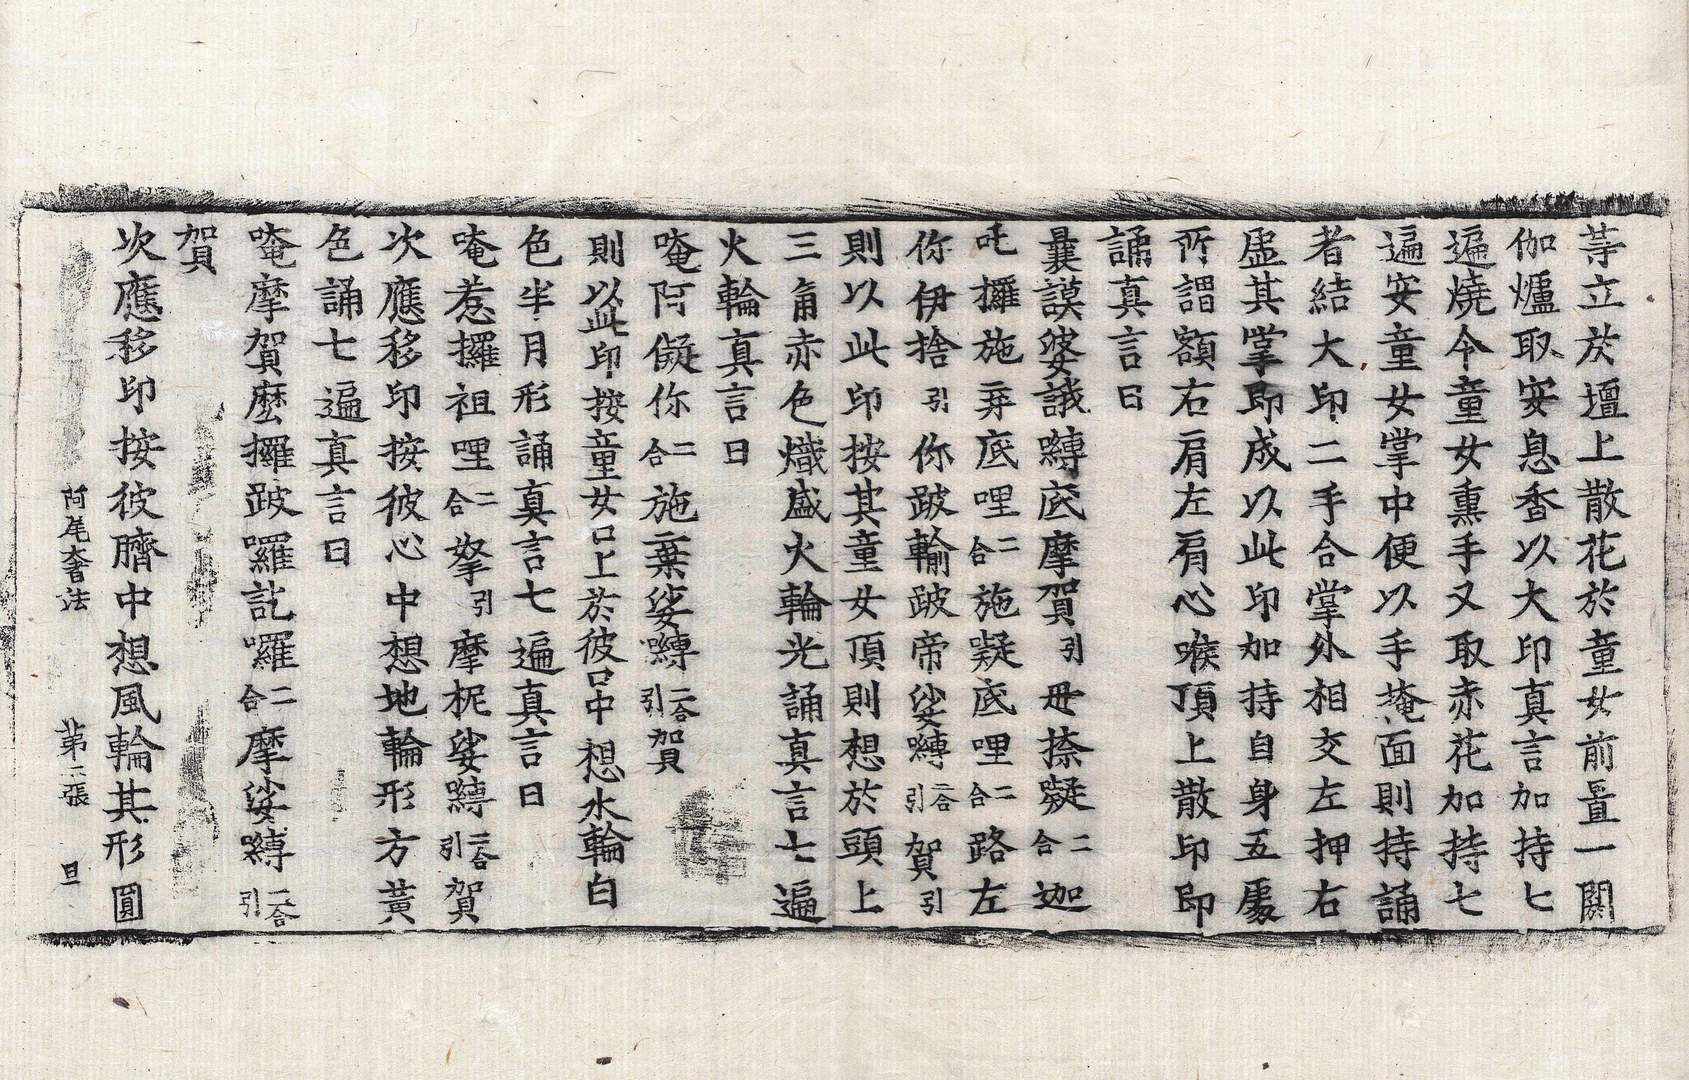 等立於壇上散花於童女前置一閼
伽爐取安息香以大印真言加持七
遍燒令童女熏手又取赤花加持七
遍安童女掌中便以手掩面則持誦
者結大印二手合掌外相交左押右
虛其掌即成以此印加持自身五處
所謂額右肩左肩心喉頂上散印即
誦真言曰
曩謨婆誐嚩底摩賀引毋捺𭌆二合迦
吒攞施弃底哩二合施𭌆底哩二合路左
你伊捨引你跛輸跛帝娑嚩二合引賀引
則以此印按其童女頂則想於頭上
三角赤色熾盛火輪光誦真言七遍
火輪真言曰
唵阿儗你二合施棄娑嚩二合引賀
則以此印按童女口上於彼口中想水輪白
色半月形誦真言七遍真言曰
唵惹攞祖哩二合拏引摩柅娑嚩二合引賀
次應移印按彼心中想地輪形方黃
色誦七遍真言曰
唵摩賀麼攞跛囉訖囉二合摩娑嚩二合引
賀
次應移印按彼臍中想風輪其形圓
阿尾奢法 第二張 旦